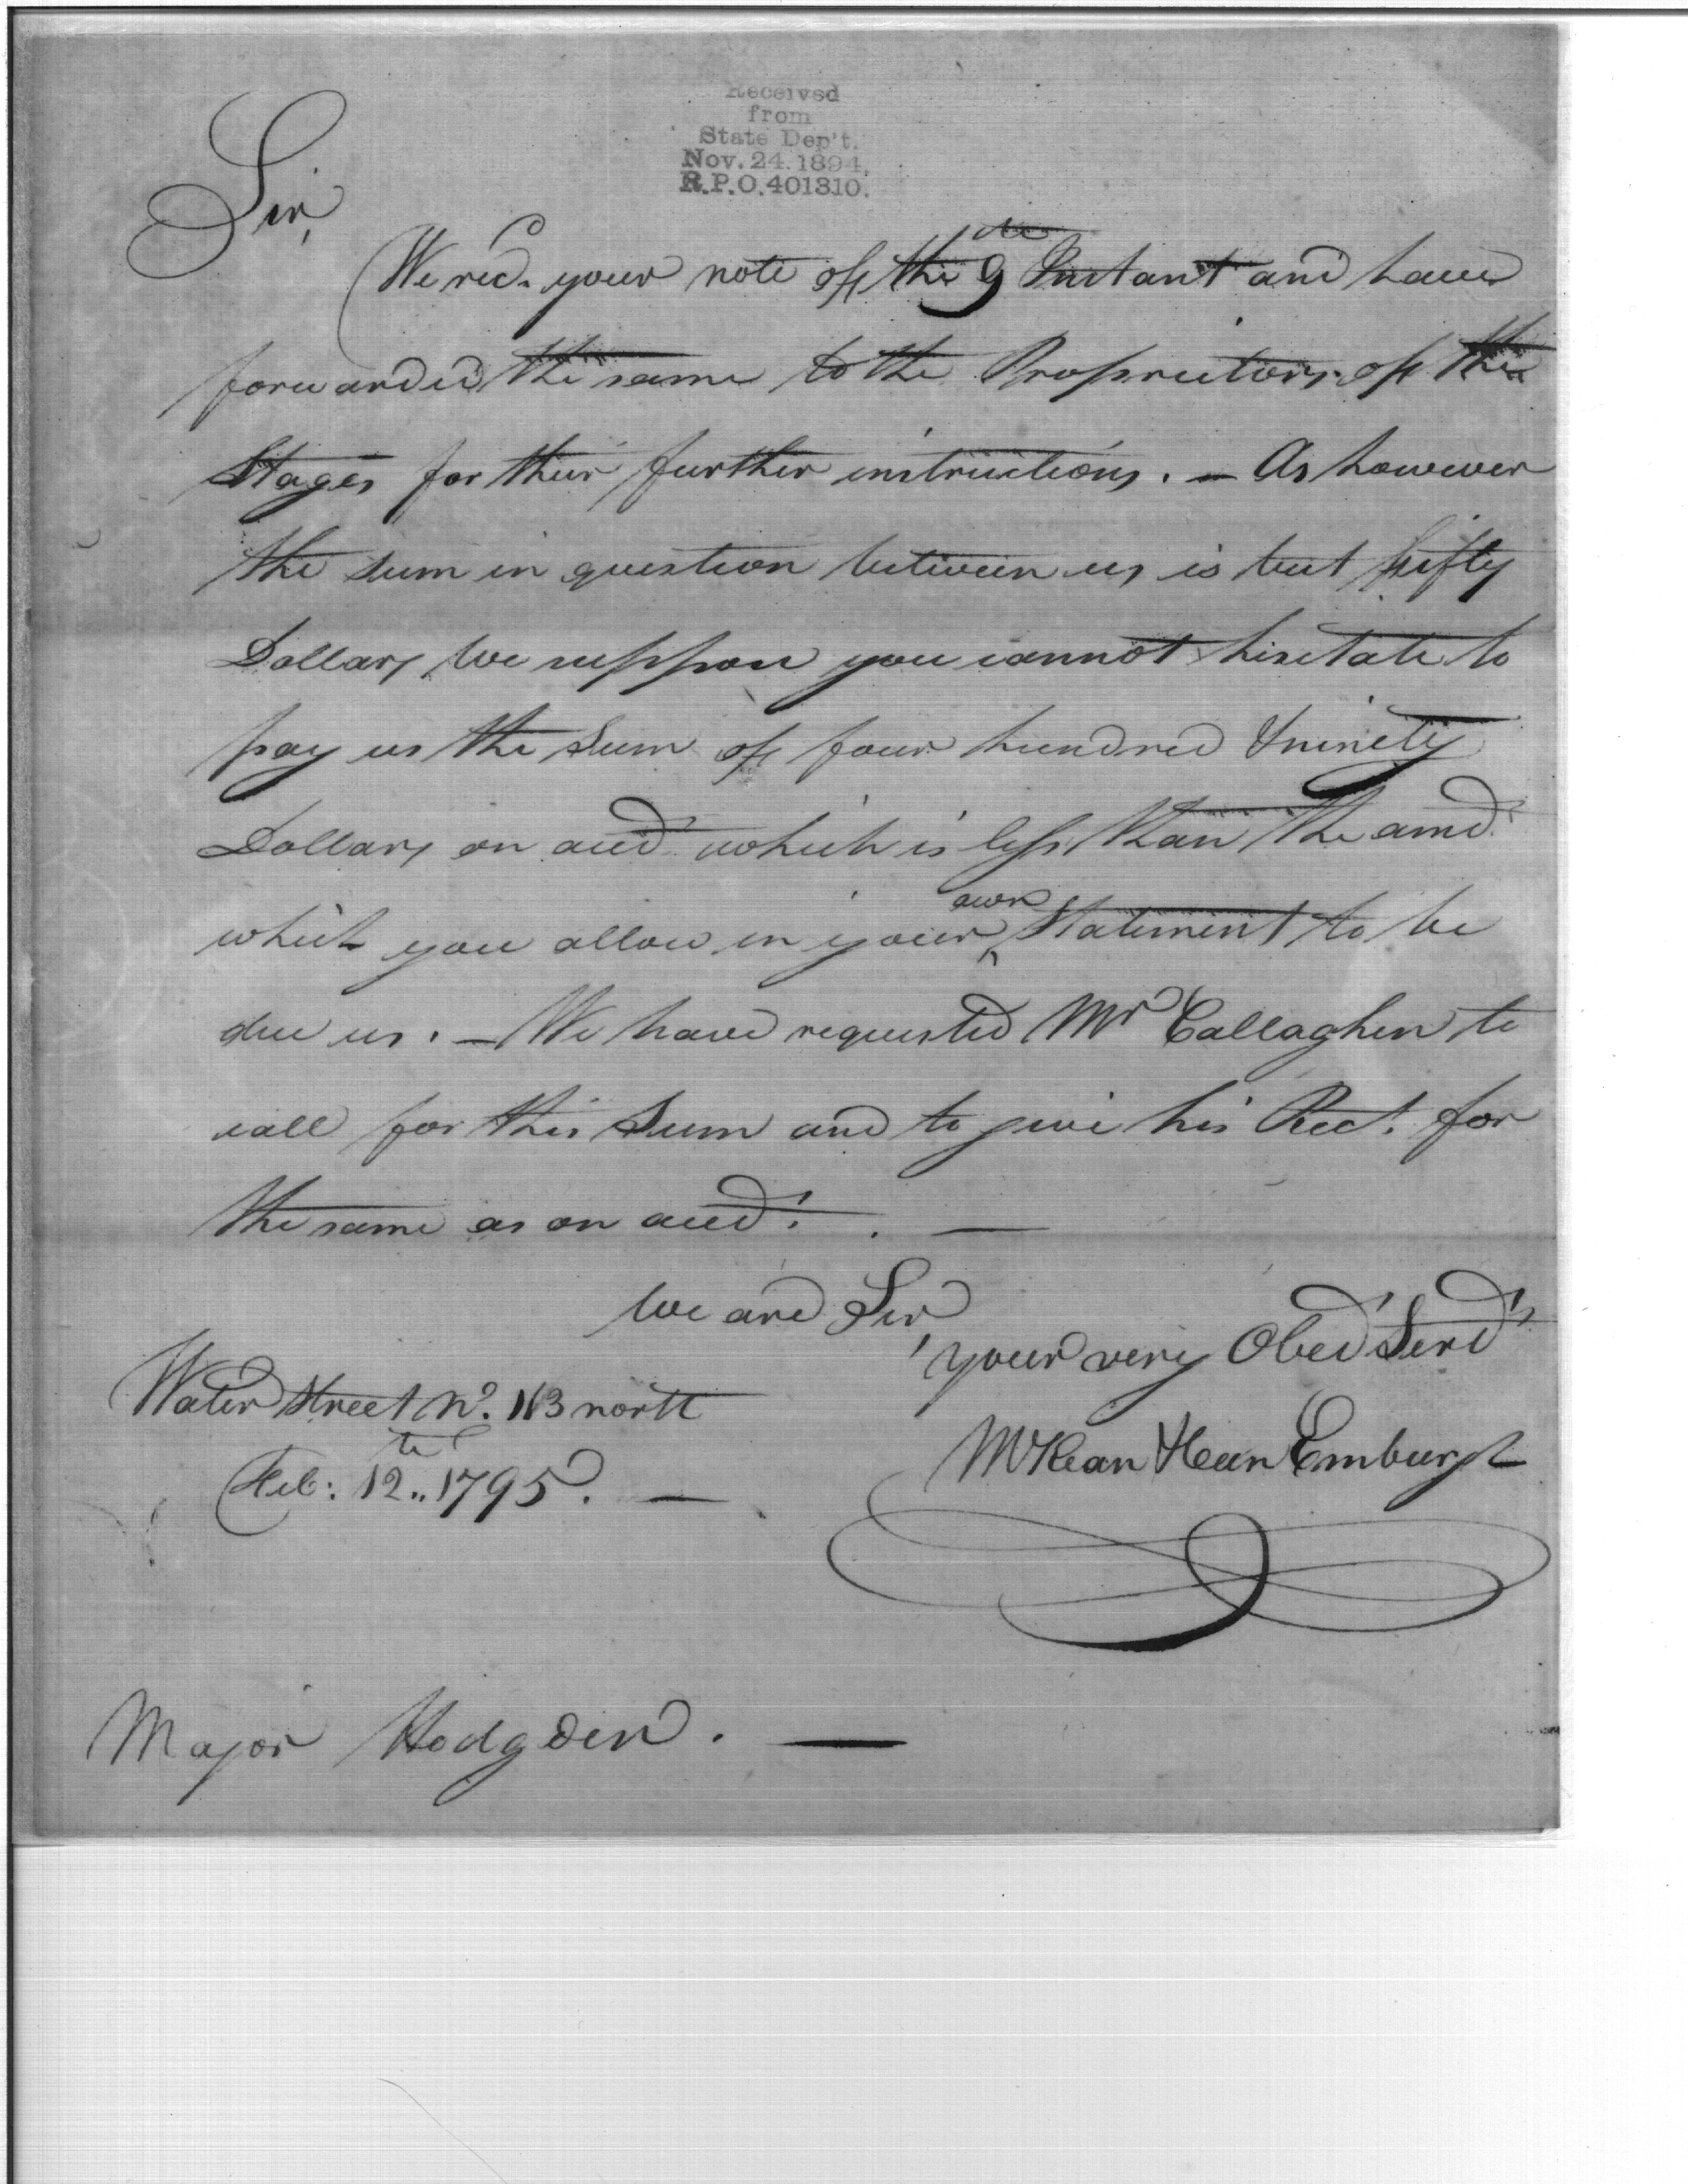 Received
from
State Dep't.
Nov. 24. 1894.
R.P.O. 401310.
Sir,
We recd. your note of the 9th Instant and have
forwarded the same to the Proprietors of the
Stages for their further instructions. — As however
the sum in question between us is but fifty
Dollars, we suppose you cannot hisetate to
pay us the sum of four hundred & ninety
Dollars on acct which is less than the amt.
which you allow in your own Statement to be
due us. — We have requested Mr Callaghen to
call for this Sum and to give his Rect. for
the same as on acct. . —
We are Sir
your very Obed Servts
Water Street No. 113 north
Feb: 12th 1795. —
McKean & Van Emburgh
Major Hodgden. —